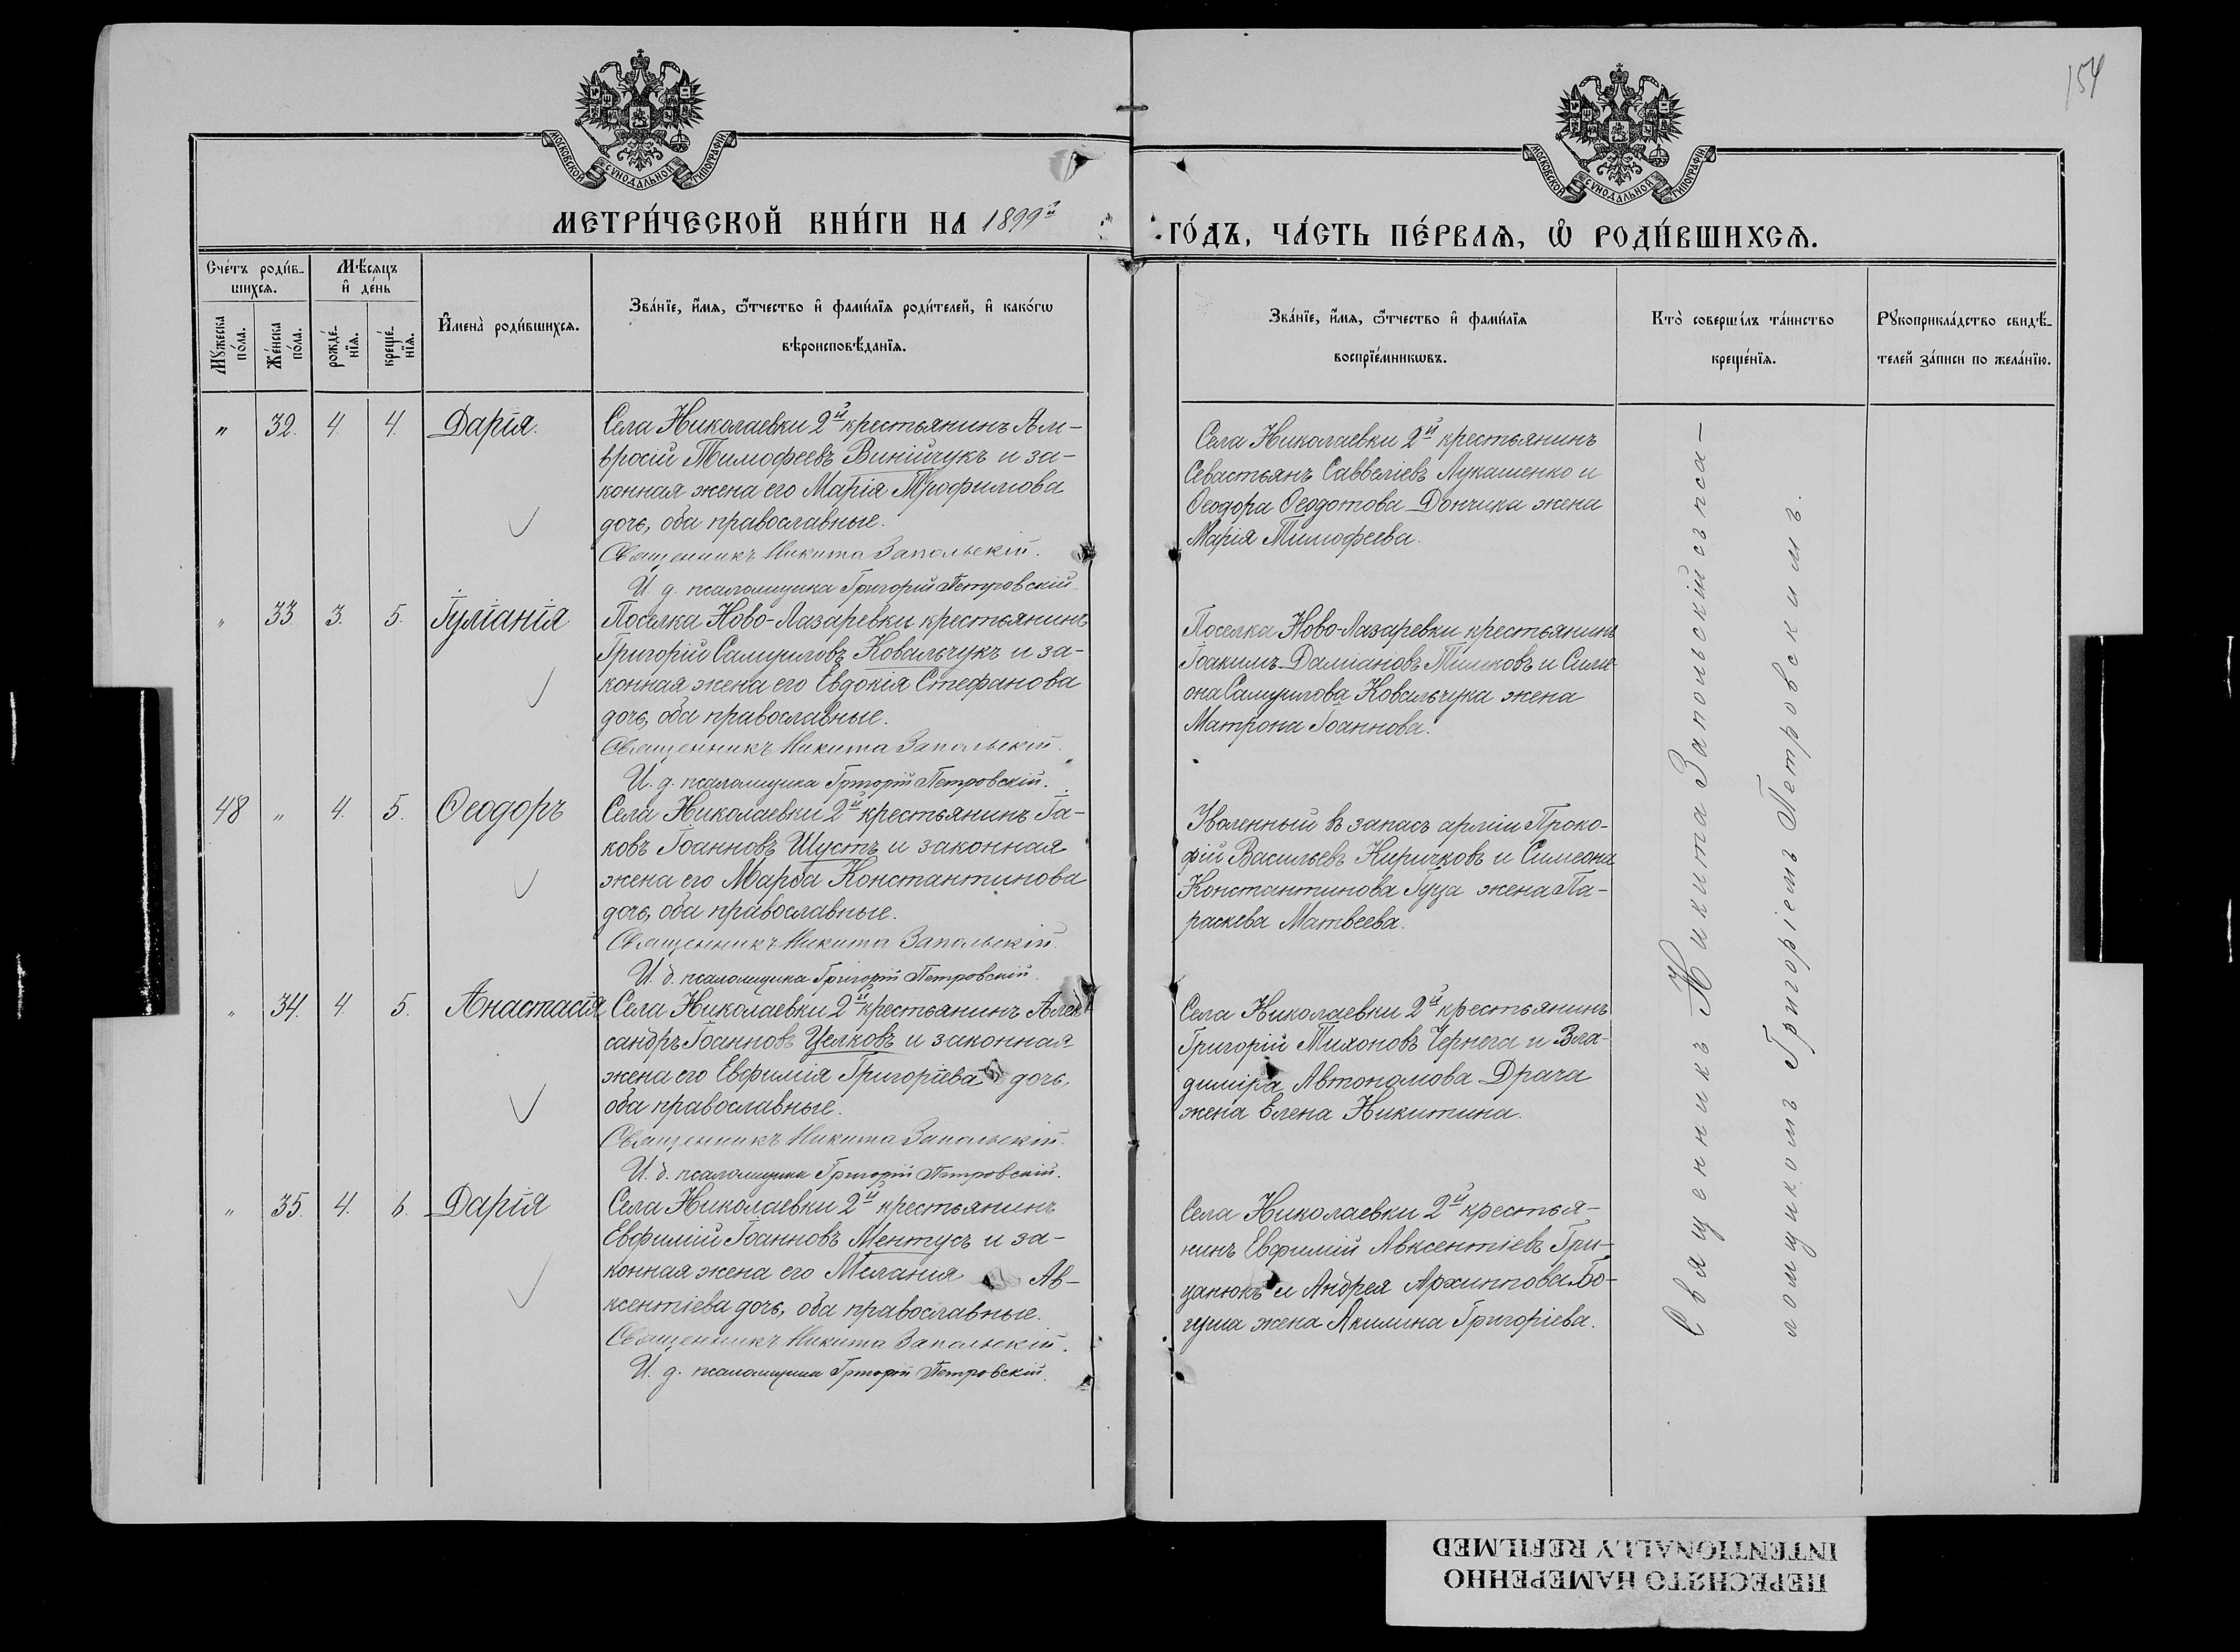 154
МОСКОВСКОЙ СѴНОДАЛЬНОЙ ТИПОГРАФІИ
МОСКОВСКОЙ СѴНОДАЛЬНОЙ ТИПОГРАФІИ
МЕТРИ́ЧЕСКОЙ КНИ́ГИ НА 1899й
ГО́ДЪ, ЧА́СТЬ ПЕ́РВАѦ, Ѡ҆ РОДИ́ВШИХСѦ.
Сче́тъ роди́в-
шихсѧ.
Мѣ́сѧцъ
и҆ де́нь
Мꙋ́жеска
по́ла.
Же́нска
по́ла.
рожде́-
нїѧ.
креще́-
нїѧ.
И҆мена̀ роди́вшихсѧ.
Зва́нїе, и҆́мѧ, ѻ҆́тчество и҆ фамѝлїѧ роди́телей, и҆ како́гѡ
вѣроисповѣ́данїѧ.
Зва́нїе, и҆́мѧ, ѻ҆́тчество и҆ фами́лїѧ
воспрїе́мникѡвъ.
Кто̀ соверши́лъ та́инство
креще́нїѧ.
Рꙋкоприкла́дство свидѣ́-
телей за́писи по жела́нїю.
" 32. 4. 4. Дарія.
Села Николаевки 2й крестьянинъ Ам-
вросій Тимофеевъ Винійчукъ и за-
конная жена его Марія Трофимова
дочь, оба православные.
Священникъ Никита Запольскій.
И. д. псаломщика Григорій Петровскій
Села Николаевки 2й крестьянинъ
Севастьянъ Савveліевъ Лукашенко и
Ѳеодора Ѳеодотова Дончика жена
Марія Тимофеева.
" 33. 3. 5. Іуліанія
Поселка Ново-Лазаревки крестьянинъ
Григорій Самуиловъ Ковальчукъ и за-
конная жена его Евдокія Стефанова
дочь, оба православные.
Священникъ Никита Запольскій.
И. д. псаломщика Григорій Петровскій.
Поселка Ново-Лазаревки крестьянинъ
Іоакимъ Даміановъ Тимковъ и Симе-
она Самуилова Ковальчука жена
Матрона Іоаннова.
48 " 4. 5. Ѳеодоръ
Села Николаевки 2й крестьянинъ Іа-
ковъ Іоанновъ Шустъ и законная
жена его Марѳа Константинова
дочь, оба православные.
Священникъ Никита Запольскій.
И. д. псаломщика Григорій Петровскій.
Уволенный въ запасъ арміи Проко-
фій Васильевъ Киричковъ и Симеона
Константинова Гуза жена Па-
раскева Матвеева.
" 34. 4. 5. Анастасія
Села Николаевки 2й крестьянинъ Алек-
сандръ Іоанновъ Целковъ и законная
жена его Евфимія Григоріева дочь,
оба православные.
Священникъ Никита Запольскій.
И. д. псаломщика Григорій Петровскій.
Села Николаевки 2й крестьянинъ
Григорій Тихоновъ Чернега и Вла-
диміра Автономова Драча
жена Елена Никитина.
" 35. 4. 6. Дарія
Села Николаевки 2й крестьянинъ
Евфимій Іоанновъ Ментусъ и за-
конная жена его Меланія Ав-
ксентіева дочь, оба православные.
Священникъ Никита Запольскій.
И. д. псаломщика Григорій Петровскій.
Села Николаевки 2й крестья-
нинъ Евфимій Авксентіевъ Гри-
цанюкъ и Андрея Архиппова Бо-
гуша жена Акилина Григоріева.
Священникъ Никита Запольскій съ пса-
ломщикомъ Григоріемъ Петровскимъ.
ПЕРЕСНЯТО НАМЕРЕННО
INTENTIONALLY REFILMED